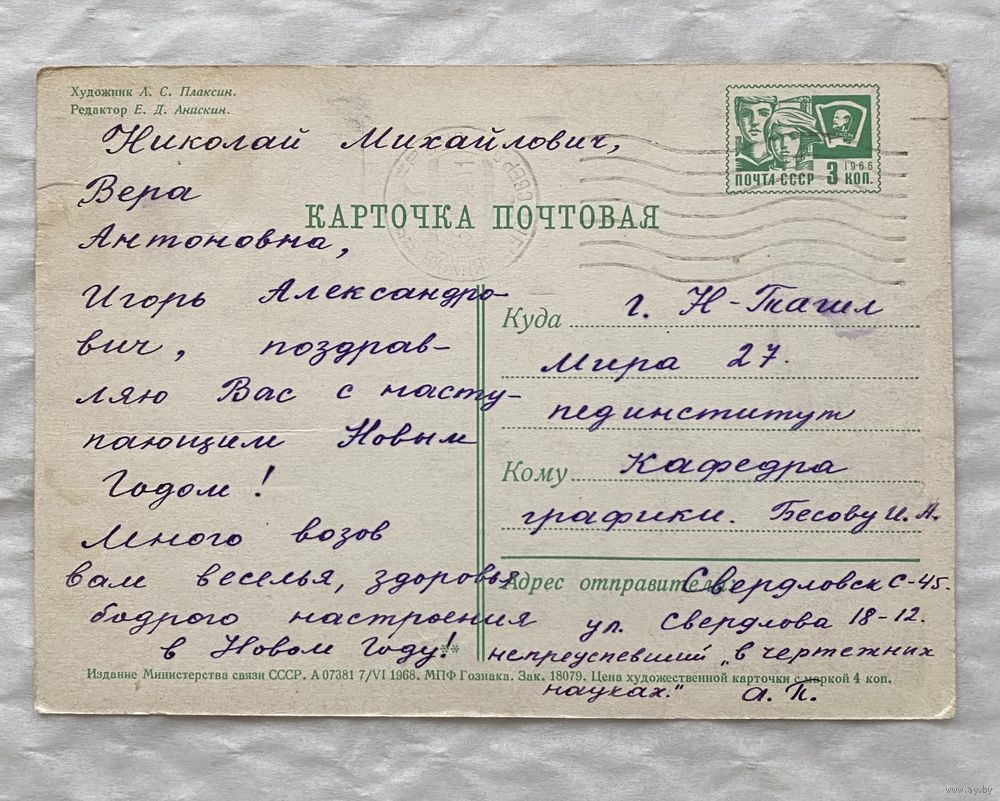 Художник А. С. Плаксин.
Редактор Е. Д. Анискин.
Николай Михайлович,
Вера
Антоновна,
Игорь Александро-
вич, поздрав-
ляю Вас с насту-
пающим Новым
Годом!
Много возов
вам веселья, здоровья
бодрого настроения
в Новом Году!
1966
ПОЧТА СССР 3 КОП.
КАРТОЧКА ПОЧТОВАЯ
Куда г. Н-Тагил
Мира 27.
пединститут
Кому Кафедра
графики. Бесову И.А.
Адрес отправителя Свердловск С-45.
ул. Свердлова 18-12.
непреуспевший „в чертежных
науках." А.П.
Издание Министерства связи СССР. А 07381 7/VI 1968. МПФ Гознака. Зак. 18079. Цена художественной карточки с маркой 4 коп.
www.ay.by